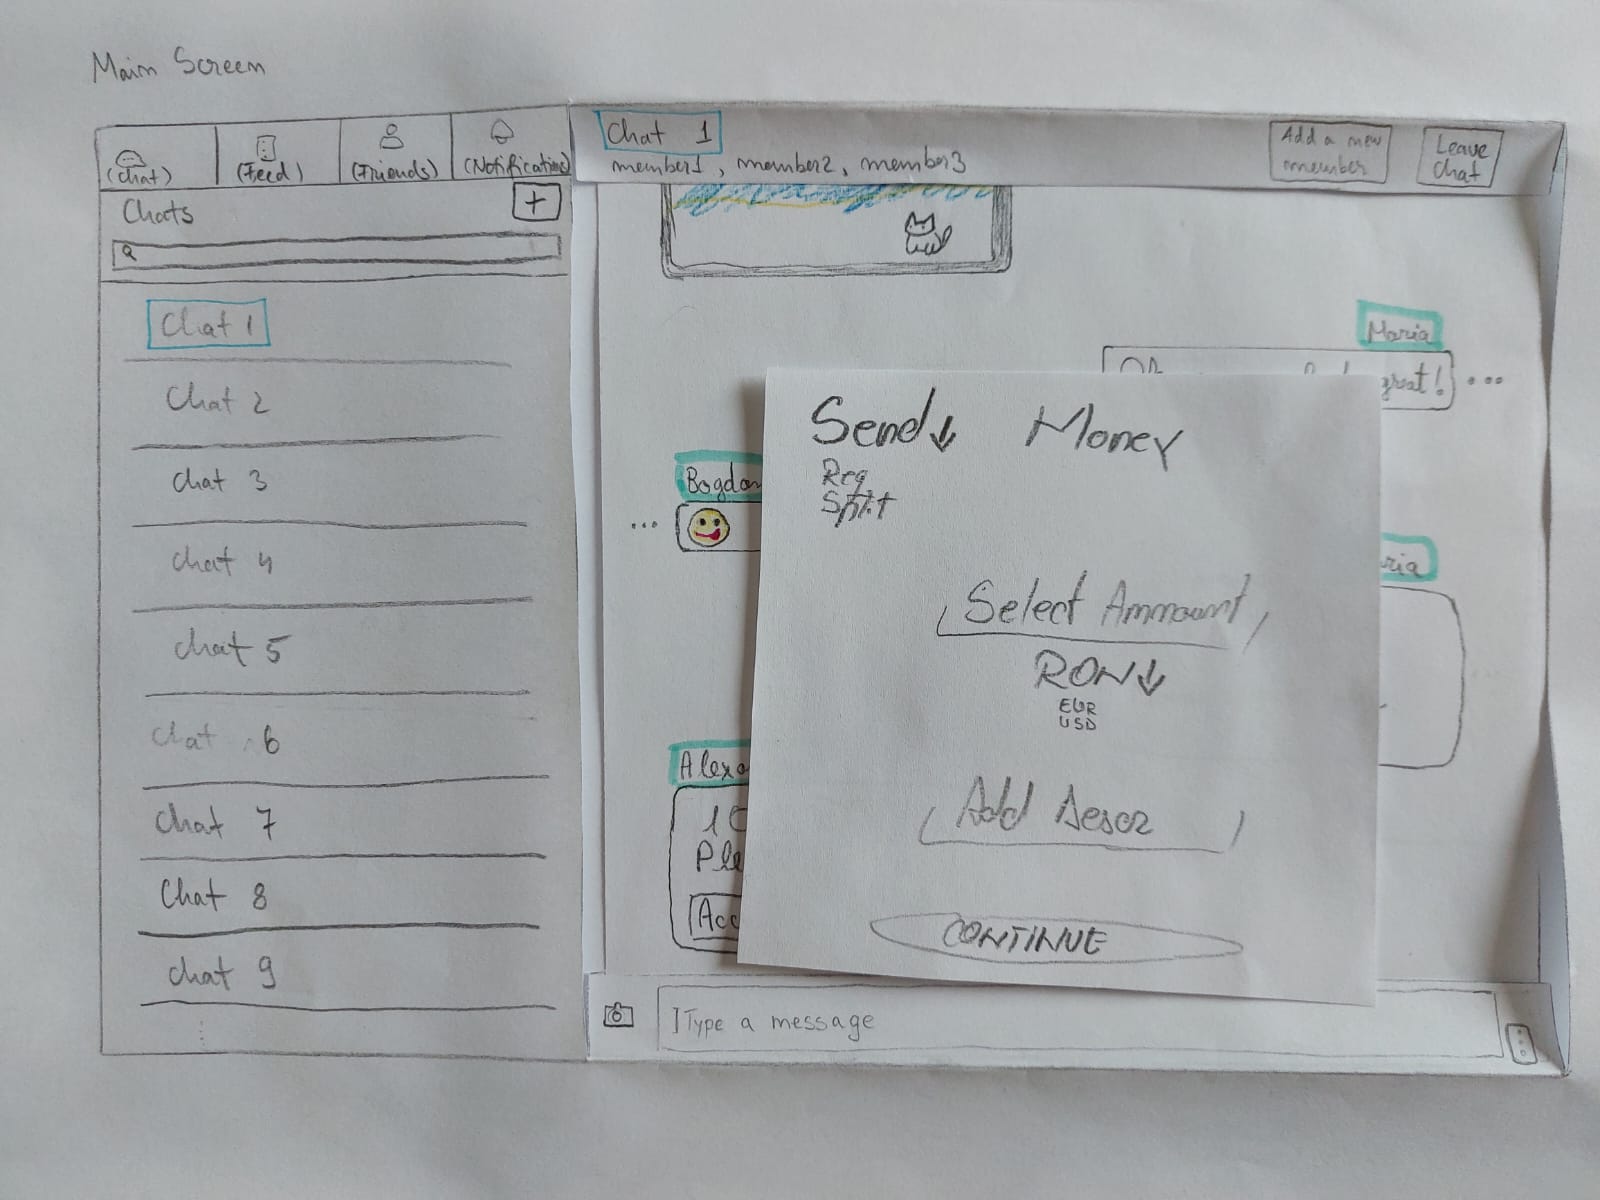 Main Screen
(Chat)
(Feed)
(Friends)
(Notifications)
Chats
+
Chat 1
Chat 2
Chat 3
Chat 4
Chat 5
Chat 6
Chat 7
Chat 8
Chat 9
Chat 1
member1, member2, member3
Add a new
member
Leave
Chat
Maria
great! ...
Bogdan
...
Alexa
Ple
Acc
Send↓ Money
Req
Split
Select Ammount
RON↓
EUR
USD
Add Descr
CONTINUE
Type a message